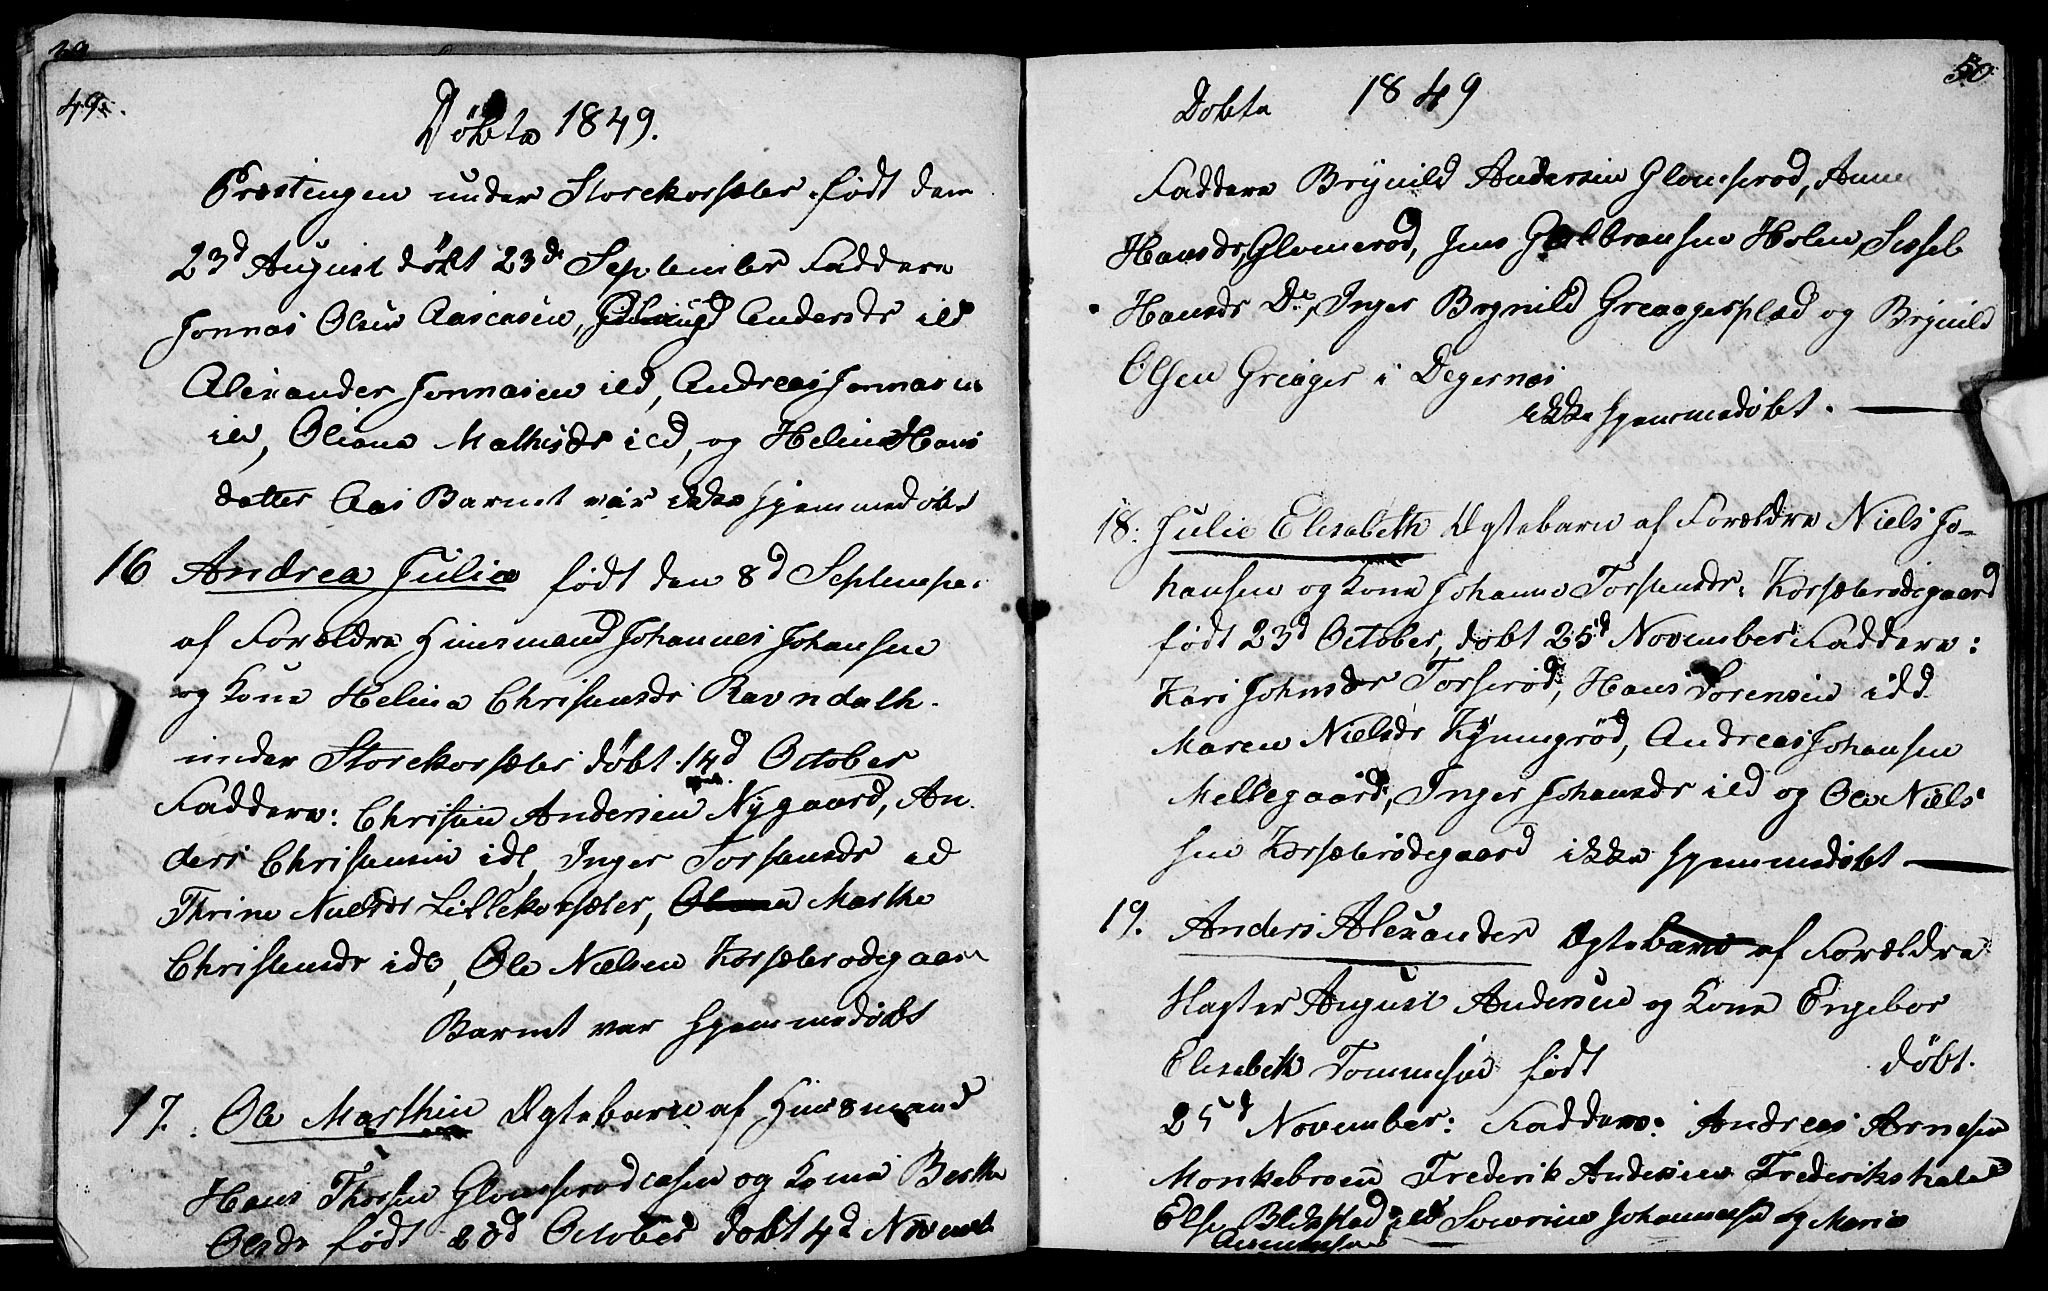 49.
Döbte 1849.
Præstengen under Storekorsæter født den
23d August döbt 23de September Faddere
Jonnas Olsen Aaseasen, Andersdr ild
Alexander Jonnasen ild, Andreas Jonnasen
ild, Oliana Mathisdr ild, og Helina Hans
datter Aas Barnet var ikke hjemmedøbt
16 Andrea Julie født den 8d Septempe.
af Forældre Huusmand Johannes Johansen
og Kone Helina Christensdr Ravndalh.
under Storekorsæter döbt 14d October
Faddere: Christen Andersen Nygaard, An
ders Christensen idl, Inger Torstensdr ed
Thrine Nielsdr Lillekorsæter, Marthe
Christensdr idl, Ole Nielsen Korsæterødegaard
Barnet var hjemmedöbt
17. Ole Marthin Ægtebarn af Huusmand
Hans Thorsen Glomserødeasen og Kone Berthe
Olsdr født October döbt 4d Novemb
50
Dobte 1849
Faddere Brynild Andersen Glomserød, Anne
Hansdr, Glomerød, Jens Gulbransen Holen, Sissel
Hansdr Do, Inger Brynild Greaagerplad og Brynild
Olsen Greager i Degernes
ikke hjemmedöbt.
18. Julie Elisabeth Ægtebarn af Forældre Niels Jo-
hansen og Kone Johanne Torstensdr. Korsæterødegaard
født 23d October, döbt 25d November Faddere:
Kari Johnsdr Torserød, Hans Sorensen idd
Maren Nielsdr Kynngrød, Andreas Johansen
Mellegaard, Inger Johansdr ild og Ole Niels
sen Korsæterødegaard ikke hjemmedøbt
19. Anders Alexander Ægtebarn af Forældre
Hagter August Andersen og Kone Engebor
Elisabeth Tommesen født döbt.
25d November: Faddere: Andreas Arnesen
Monkebroen Frederik Andersen Frederikshald
Else Blikstad ild Sverine Johannesen og Marie